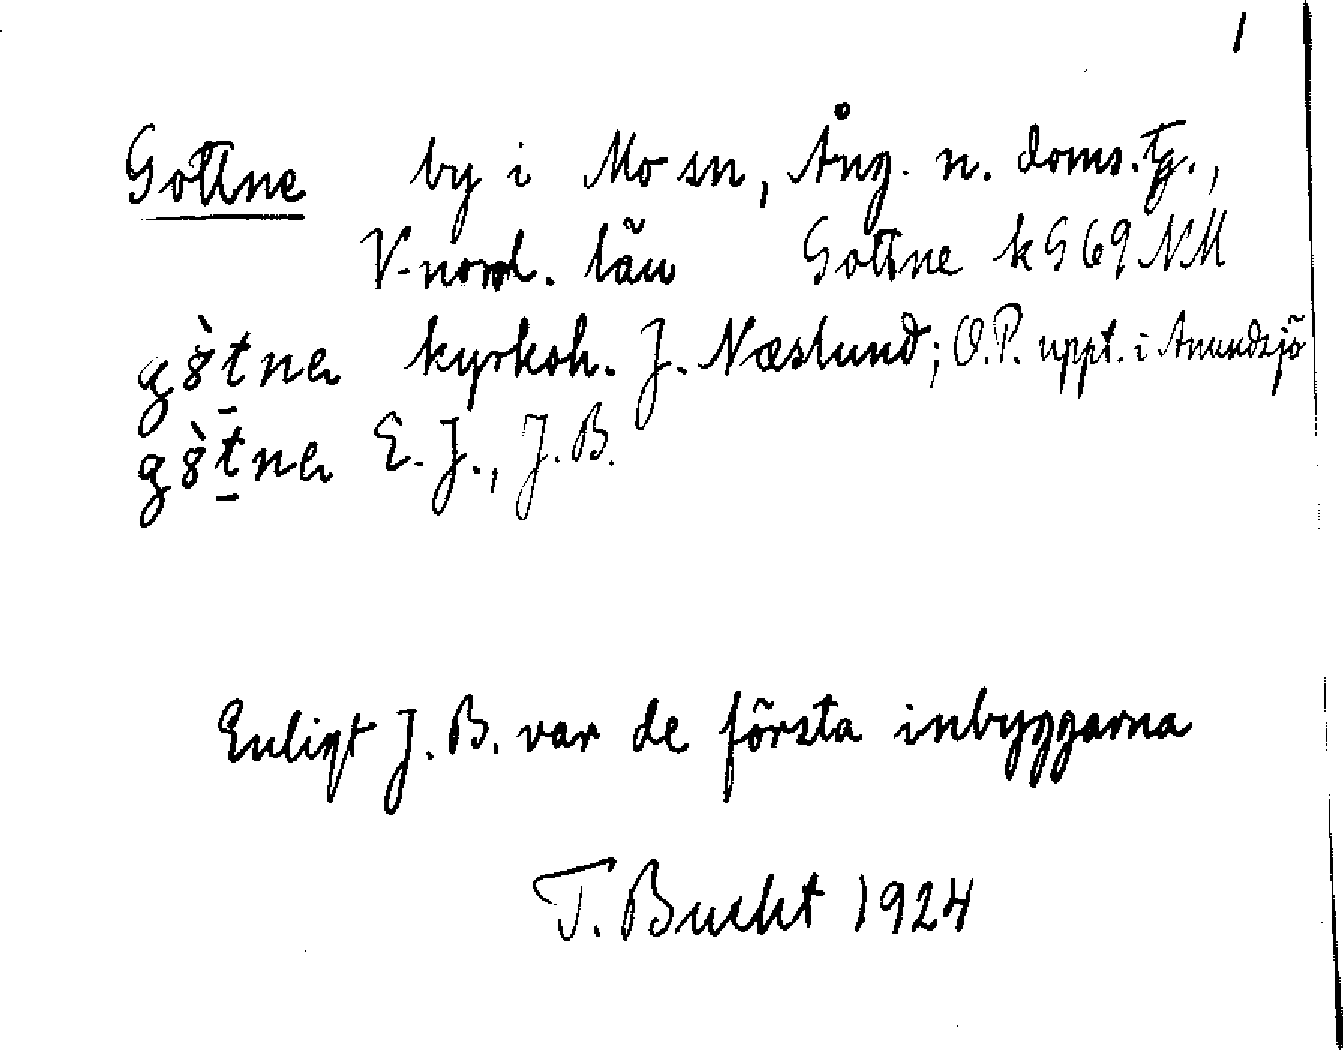 1
Gottne by i Mo sn, Ång. n. doms. tg.,
V-norrl. län Gottne k G 69 NM
gòtnen kyrkoh. J. Næslund; O.P. uppt. i Anundsjö
gòtnen E. J., J. B.
Enligt J. B. var de första inbyggarna
T. Bucht 1924